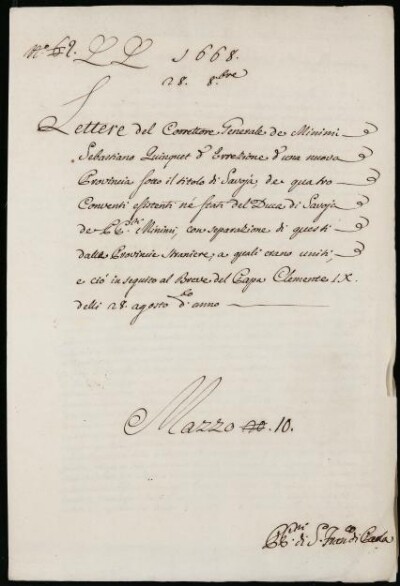 N.º 69. LL 1668.
28. 8.bre
Lettere del Correttore Generale de Minimi
Sebastiano Quinquet d'Errezione d'una nuova
Provincia sotto il titolo di Savoja, de quatro
Conventi esistenti né stati del Duca di Savoja
de PP.di Minimi, con separazione di questi
dalle Provincie straniere, a quali erano uniti,
e ciò in seguito al Breve del Papa Clemente IX.
delli 28. agosto d.to anno
Mazzo 10.
PP. Mni di S. Franco di Paola